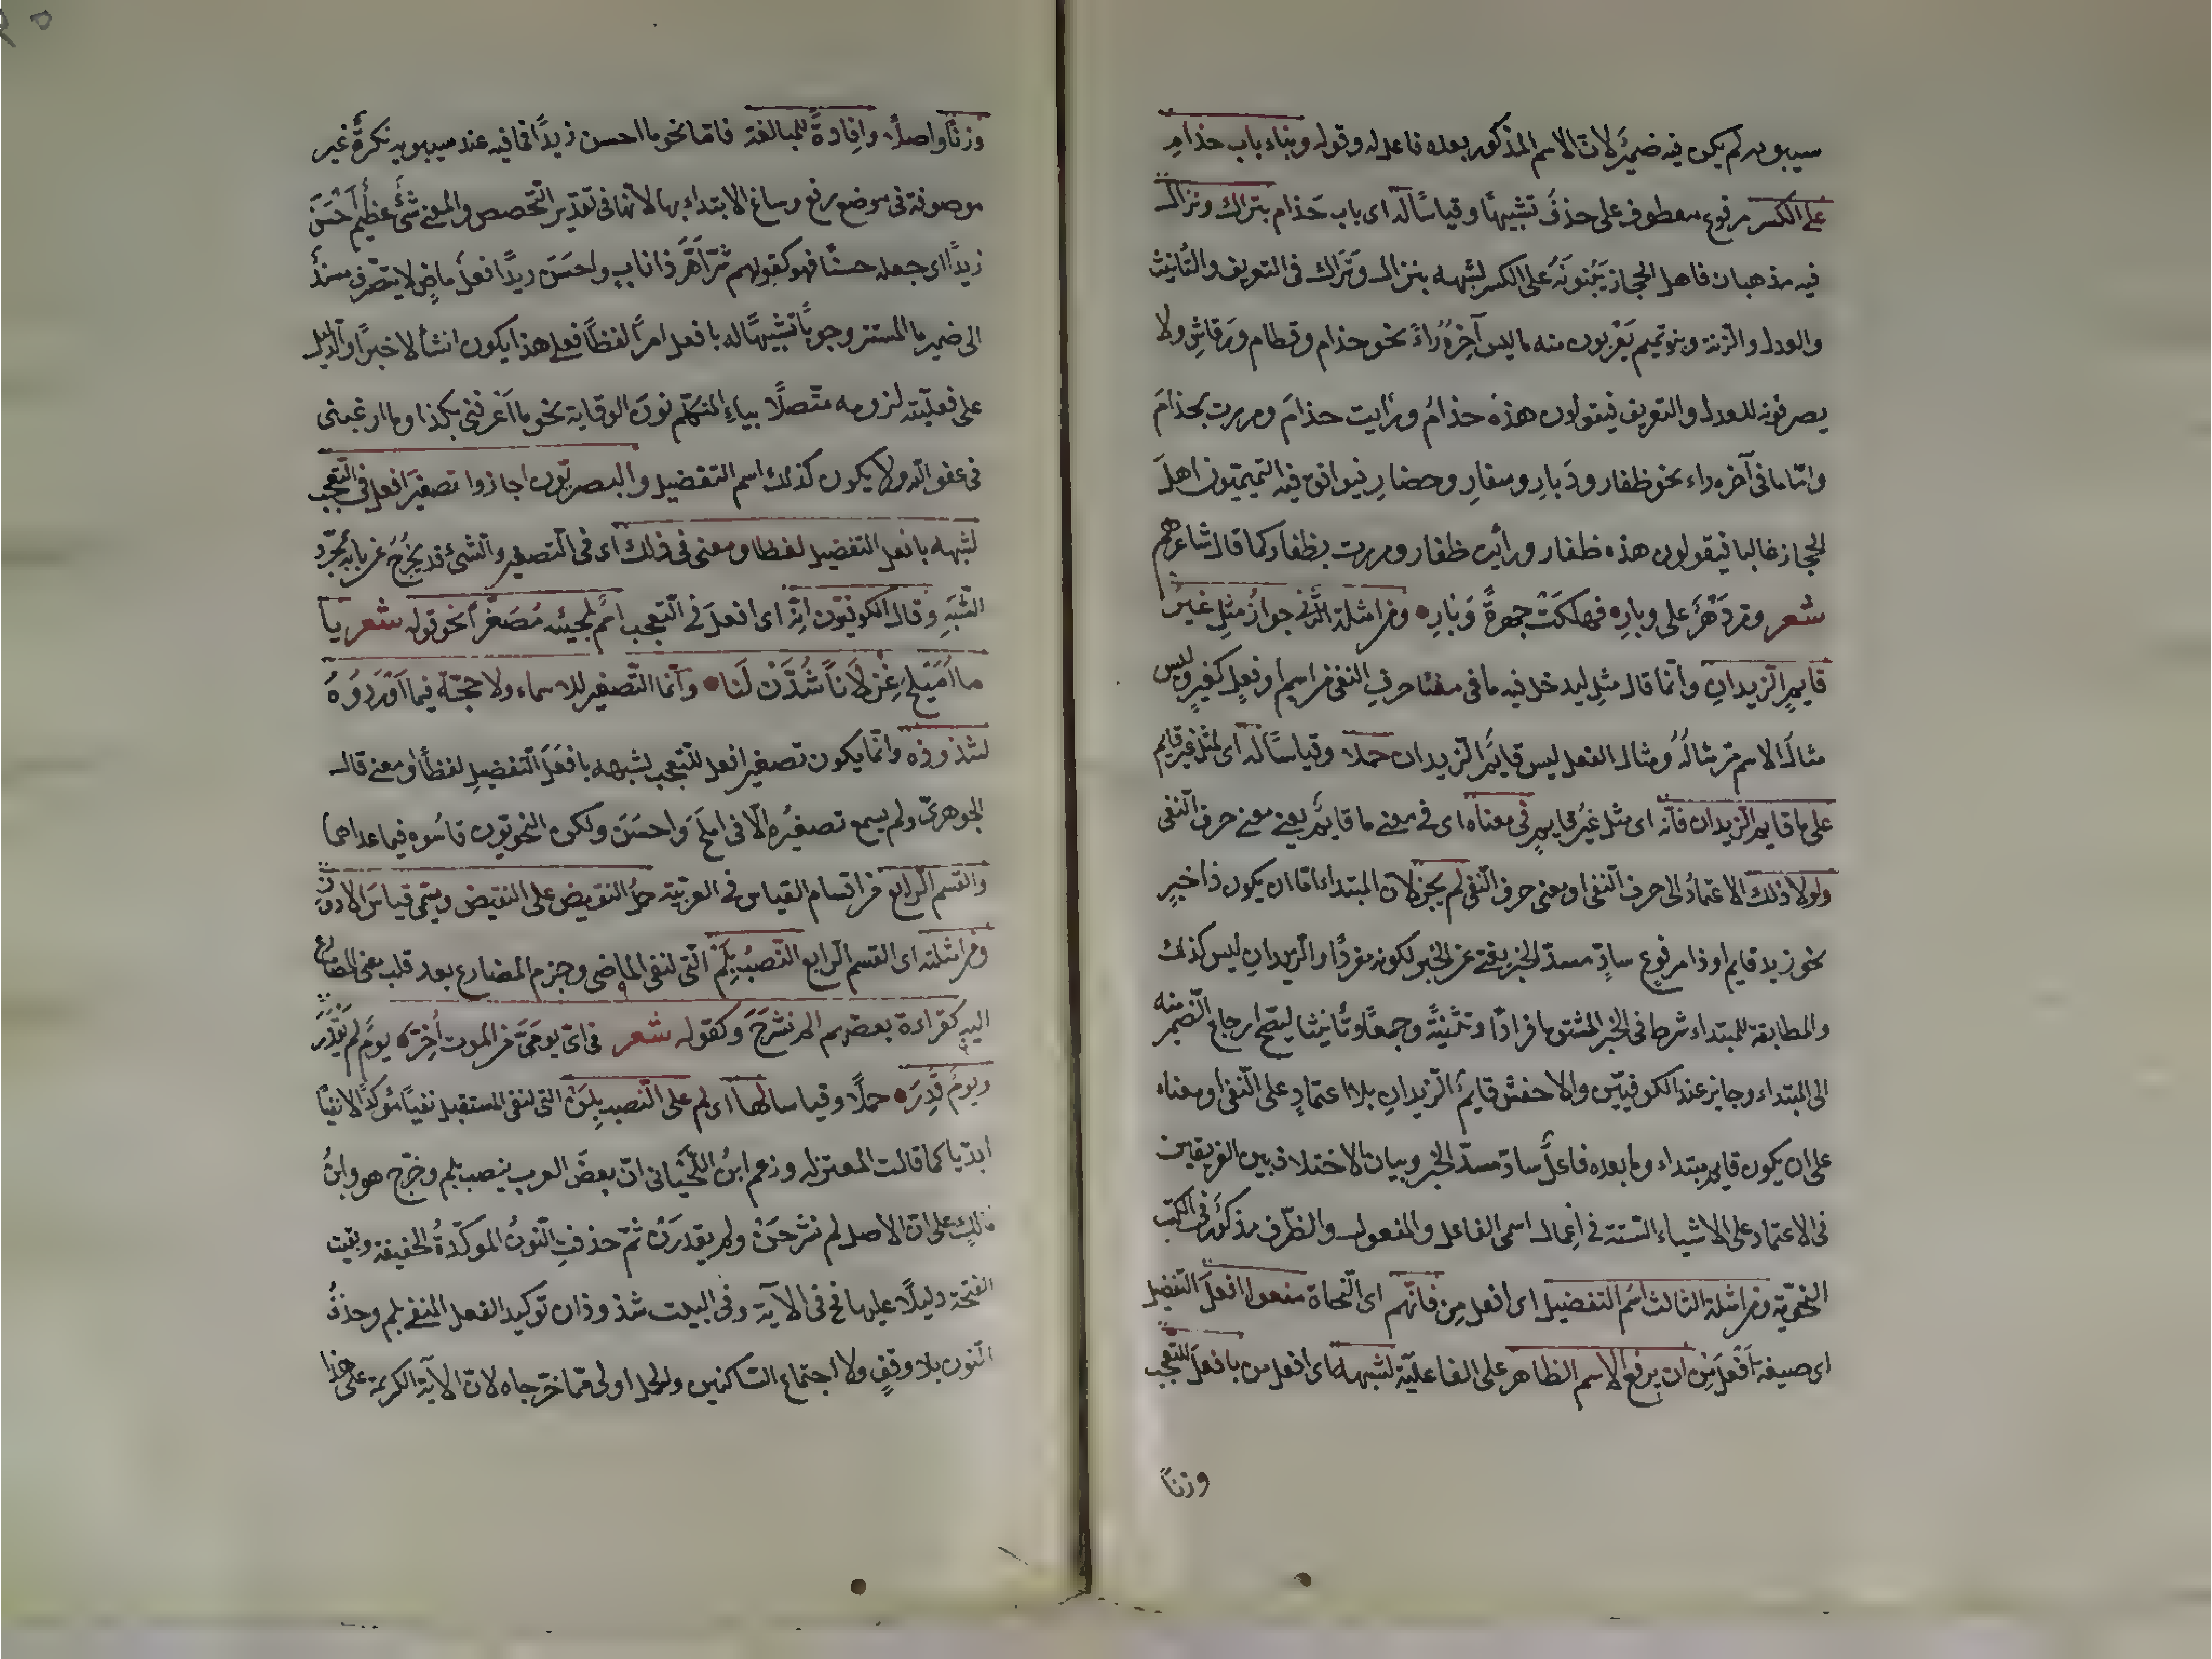 سيبويه لم يكن فيه ضميرٌ لانّ الاسم المذكور بعده فاعل له وقوله وبناء باب حذامِ
على الكسر مرفوع معطوف على حذفُ تشبيهًا وقياسًا له اى باب حَذام بتراك ونزال
فيه مذهبان فاهل الحجاز يَبْنونَهُ على الكسر لشبهه بنزال وتَراك فى التعريف والتَّانيث
والعدل والزنة وبنو تميم يُعْربون منه ما ليس آخِرُهُ راءً نحو حذام وقطام ورَقاشِ ولا
يصرفونه للعدل والتعريف فيقولون هذه حذامُ ورَايت حذامَ ومررت بحذامَ
وامّا ما فى آخره راء نحو ظفار ووَبارِ وسفارِ وحضارِ فيوافق فيه التميميّون اهلَ
الحجاز غالبا فيقولون هذه ظفار ورأيت ظفار ومررت بظفار كما قال شاعرهم
شعر ومر دَهْرٌ على وبارِ فهلكَتْ جهرةً وَبارِ ومن امثلة الثَّانى جوازُ مثلِ غيرُ
قايمٍ الزيدانِ وانّما قال مثلِ ليدخل فيه ما فى معناه حرفِ النفى من اسمٍ او فعلٍ كغيرٍ وليس
مثالُ الاسم مرّ مثالُهُ ومثال الفعل ليس قايمٌ الزيدان حملا وقياسًا له اى لمثل غير قايم
على ما قايم الزيدان فانّه اى مثل غيرُ قايمٍ فى معناه اى فى معنى ما قايمٌ يعنى معنى حرف النفى
ولولا ذلك الاعتمادُ الى حرف النفى او معنى حرف النفى لم يجز لانّ المبتداء امّا ان يكون ذا خبرٍ
نحو زيد قايم او ذا مرفوعٍ سادٍّ مسدّ الخبر يغنى عن الخبر لكونه مفردًا والزيدانِ ليس كذلك
والمطابقة للمبتداء شرط فى الخبر المشتق افرادًا وتثنيةً وجمعًا وتأنيثا ليصحّ ارجاع الضمير منه
الى المبتداء وجايز عند الكوفيّين والاخفش قايمٌ الزيدانِ بلا اعتمادٍ على النّفى او معناه
على ان يكون قايم مبتداء وما بعده فاعلٌ سادّ مسدّ الخبر وبيان الاختلاف بين الفريقين
فى الاعتماد على الاشياء الستّة فى اِعمال اسمى الفاعل والمفعول والظّرف مذكورٌ فى الكتب
النحويّة ومن امثلة الثالث اسمُ التفضيل اى افعل مِن فانّهم اى النّحاة منعوا افعلَ التفضيل
اى صيغة اَفْعَلَ مِن ان يرفع الاسم الظاهر على الفاعليّة لشبهه اى افعل من بافعلَ للتّعجب
وزنًا
وزنًا واصلًا وافادةً للمبالغة فامّا نحو ما احسن زيدًا فما فيه عند سيبويه نكرةٌ غير
موصوفة فى موضع رفع وساغ الابتداء بها لانّها فى تقدير التخصص والمعنى شئٌ عظيم اَحْسَنَ
زيدًا اى جعله حسنًا فهو كقولهم شرّ اَهَرَّ ذا نابٍ واحسَنَ زيدًا فعل ماضٍ لا يتصّرف مسندٌ
الى ضمير ما المستتر وجوبًا تشبيهًا له بافعل امرًا لفظًا فعلى هذا يكون انشأ لا خبرًا والدليل
على فعليّته لزومه متّصلًا بياء المتكلّم نون الوقاية نحو ما اَعْرفنى بكذا وما ارغبنى
فى عفو الله ولا يكون كذلك اسم التفضيل والبصريّون اجازوا تصغيَر افعل فى التّعجب
لشبهه بافعل التفضيل لفظا ومعنى فى ذلك اى فى التصغير والشئ قد يخرُجُ عن بابه بمجرّد
الشَّبَهِ وقال الكوفيّون انّه اى افعلَ فى التعجب اسمٌ لمجيئه مُصَغَّرًا نحو قوله شعر يا
ما اُمَيْلحَ غِزْلَانًا شُدَّنْ لَنا وانّما التّصغير للاسماء ولا حجّة فيما اَوْرَدُوهُ
لشذوذه وانّما يكون تصغير افعل للتّعجب لشبهه بافعَلَ التفضيلِ لفظًا ومعنى قال
الجوهرىّ ولم يسمع تصغيُره الّا فى املَحَ واحسَنَ ولكن النحويّون قاسُوه فيما عداهما
والقسم الرابع من اقسام القياس فى العربيّة حملُ النقيض على النقيض ويسمّى قياسَ الادون
ومن امثلته اى القسم الرابع النّصبُ بِلَمْ الّتى لنفى الماضى وجزم المضارع بعد قلب معنى المضارع
اليه كقراءة بعضهم الم نشرحَ وكقوله شعر فى اىّ يومَىَّ من الموت اُفِرّ يومَ لم يُقْدَرَ
ويومَ قُدِرَ حملًا وقياسا لها اى لم على النّصب بِلَنْ التى لنفى المستقبل نفيًا مؤكدًا لا نفيًا
ابدّيا كما قالت المعتزله وزعم ابنُ اللّحْيانى انّ بعضَ العرب ينصب بلم وخرّج هو وابنُ
مالكٍ على انّ الاصل لم نشرحَنْ ولم يقدرَنْ ثمّ حذفتِ النّونُ الموكّدةُ الخفيفة وبقيت
الفتحة دليلًا عليها فح فى الآية وفى البيت شذوذان توكيد الفعل المنفى بلم وحذفُ
النون بلا وقفٍ ولا اجتماع السّاكنين والحمل اولى ممّا خرّجاه لانّ الآية الكريمة على هذا